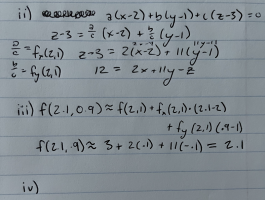 ii) a(x-2)+b(y-1)+c(z-3)=0
z-3 = a/c (x-2) + b/c (y-1)
a/c = fx(2,1) z-3 = 2(x-2) + 11(y-1)
b/c = fy(2,1) 12 = 2x+11y-z
iii) f(2.1,0.9) ≈ f(2,1) + fx(2,1)·(2.1-2)
+ fy(2,1)(.9-1)
f(2.1,.9) ≈ 3 + 2(.1) + 11(-.1) = 2.1
iv)